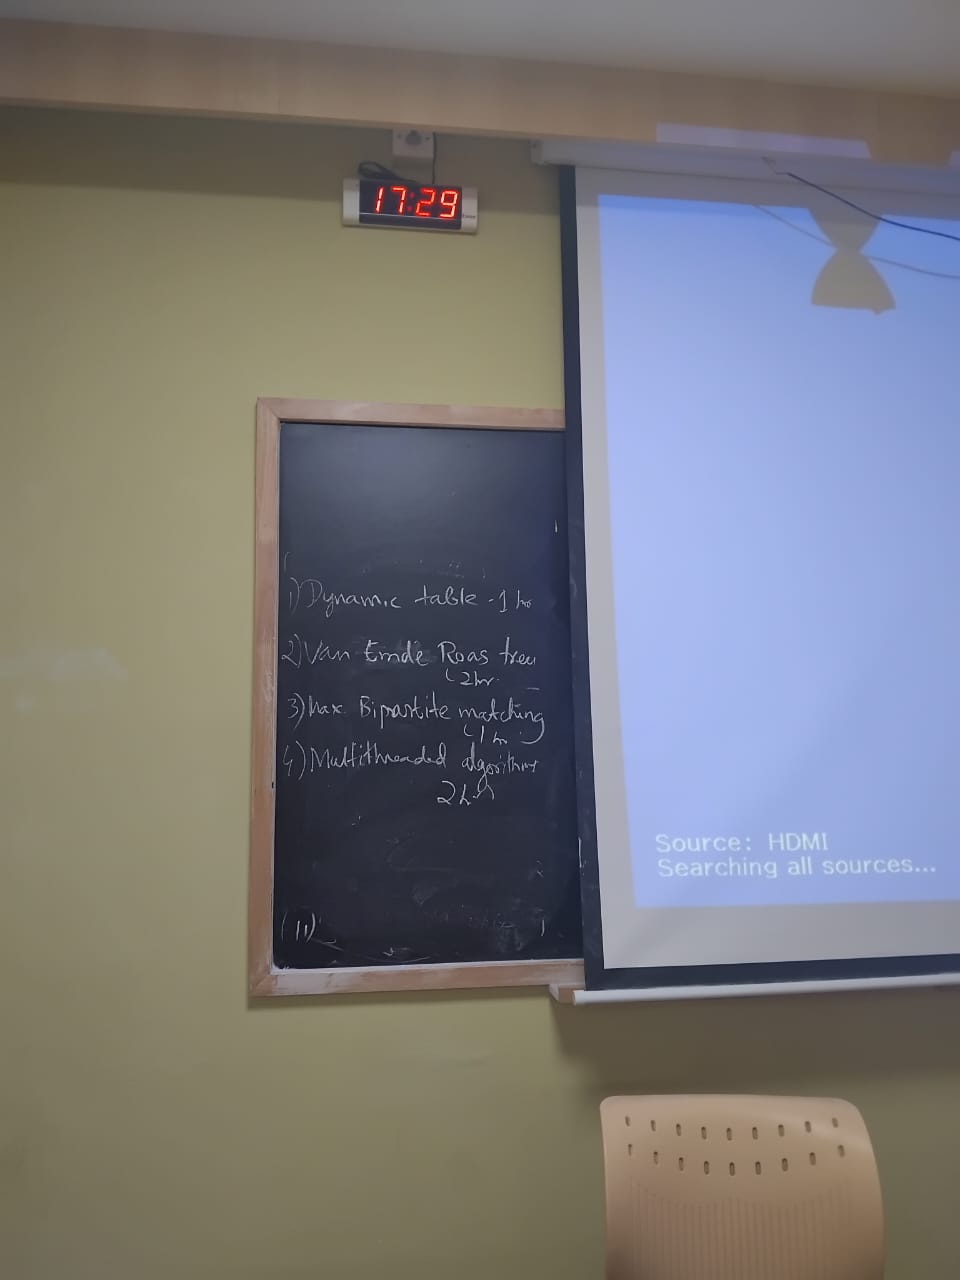 17:29
1) Dynamic table - 1 hr
2) Van Emde Boas tree
(2hr.
3) Max. Bipartite matching
(1 hr.
4) Multithreaded algorithms
2hrs
(11)
Source: HDMI
Searching all sources...